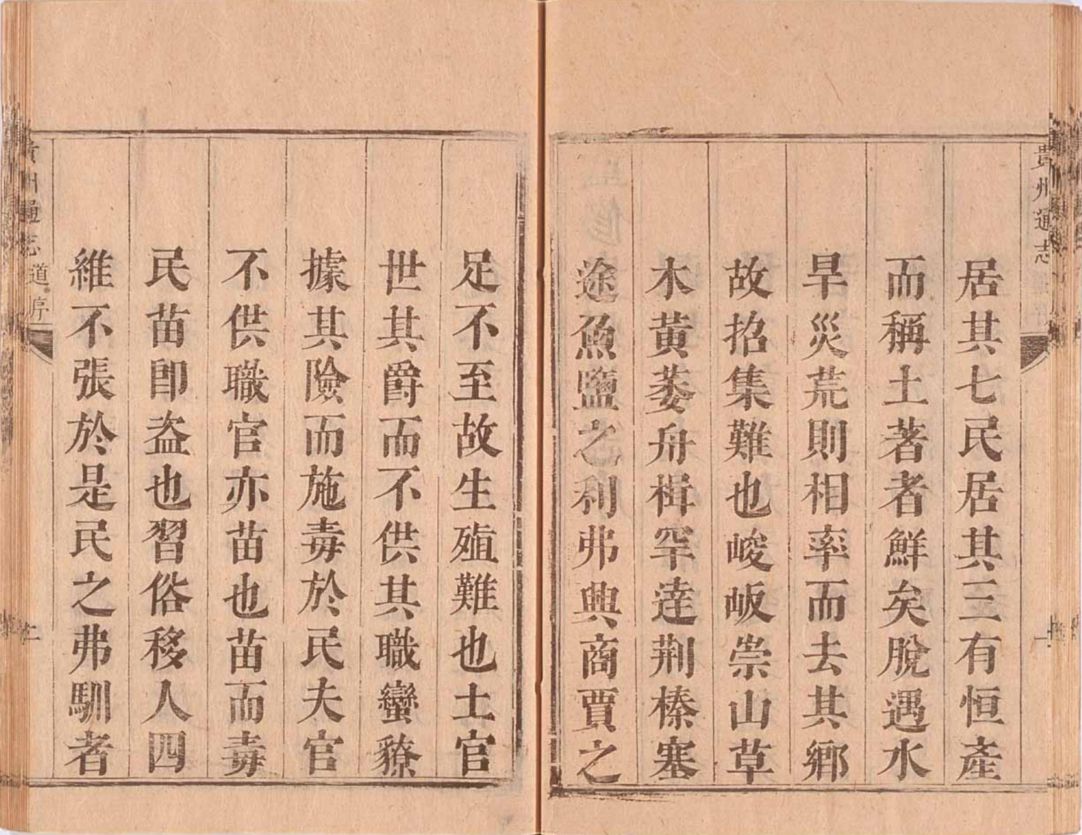 貴州通志
居其七民居其三有恒產
而稱土著者鮮矣脫遇水
旱災荒則相率而去其鄉
故招集難也峻岅崇山草
木黄萎舟楫罕達荆榛塞
途魚鹽之利弗興商賈之
足不至故生殖難也土官
世其爵而不供其職蠻獠
據其險而施毒於民夫官
不供職官亦苗也苗而毒
民苗卽盗也習俗移人四
維不張於是民之弗馴者
貴州通志 道序 二